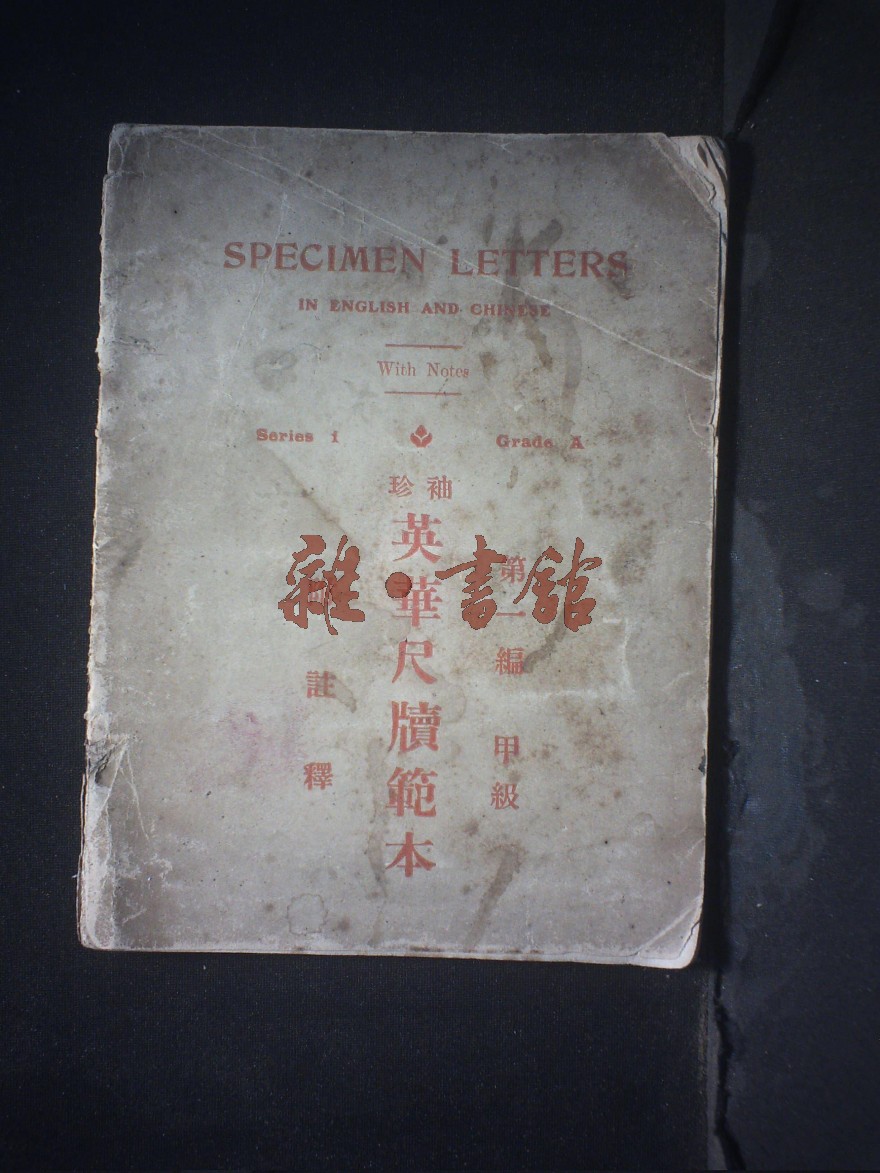 SPECIMEN LETTERS
IN ENGLISH AND CHINESE
With Notes
Series 1
Grade A
袖珍
第一編 甲級
英華尺牘範本
註釋
雜·書館